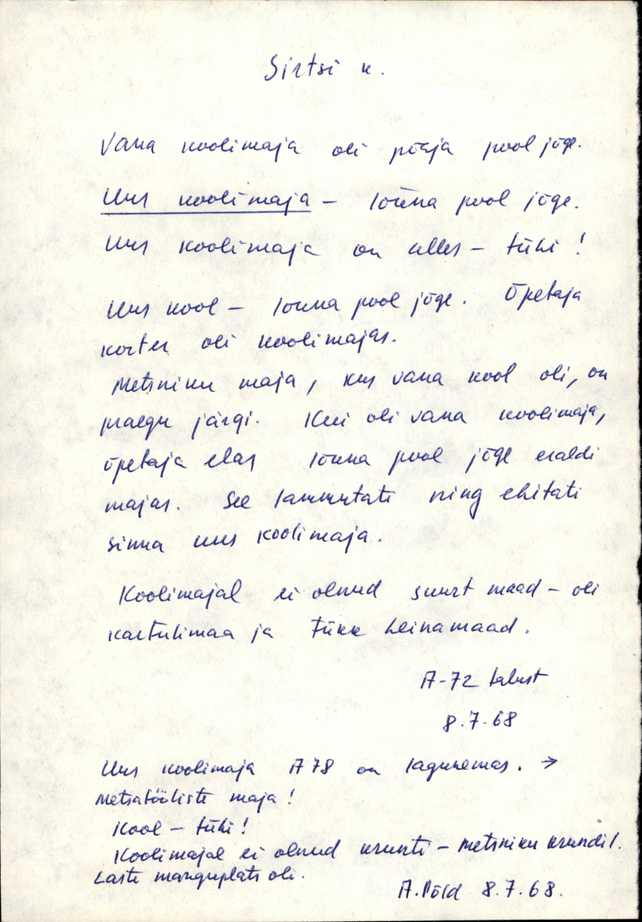 Sirtsi k.
Vana koolimaja oli põhja pool jõge.
Uus koolimaja – lõuna pool jõge.
Uus koolimaja on alles – tühi!
Uus kool – lõuna pool jõge. Õpetaja
korter oli koolimajas.
Metsniku maja, kus vana kool oli, on
praegu järgi. Kui oli vana koolimaja,
õpetaja elas lõuna pool jõge eraldi
majas. See lammutati ning ehitati
sinna uus koolimaja.
Koolimajal ei olnud suurt maad – oli
kartulimaa ja tükk heinamaad.
A-72 talust
8.7.68
Uus koolimaja A78 on lagunemas. →
Metsatööliste maja!
Kool – tühi!
Koolimajal ei olnud krunti – metsniku krundil.
Laste mänguplats oli.
A. Põld 8.7.68.